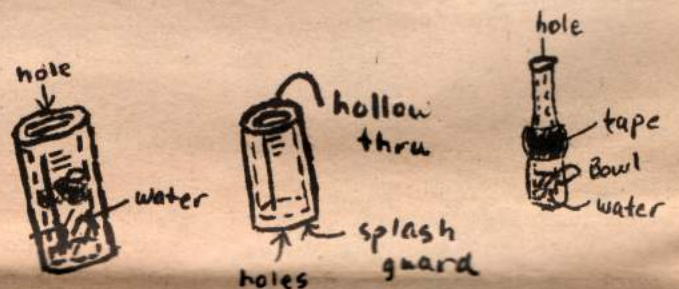 hole
water
hollow
thru
splash
guard
holes
hole
tape
Bowl
water